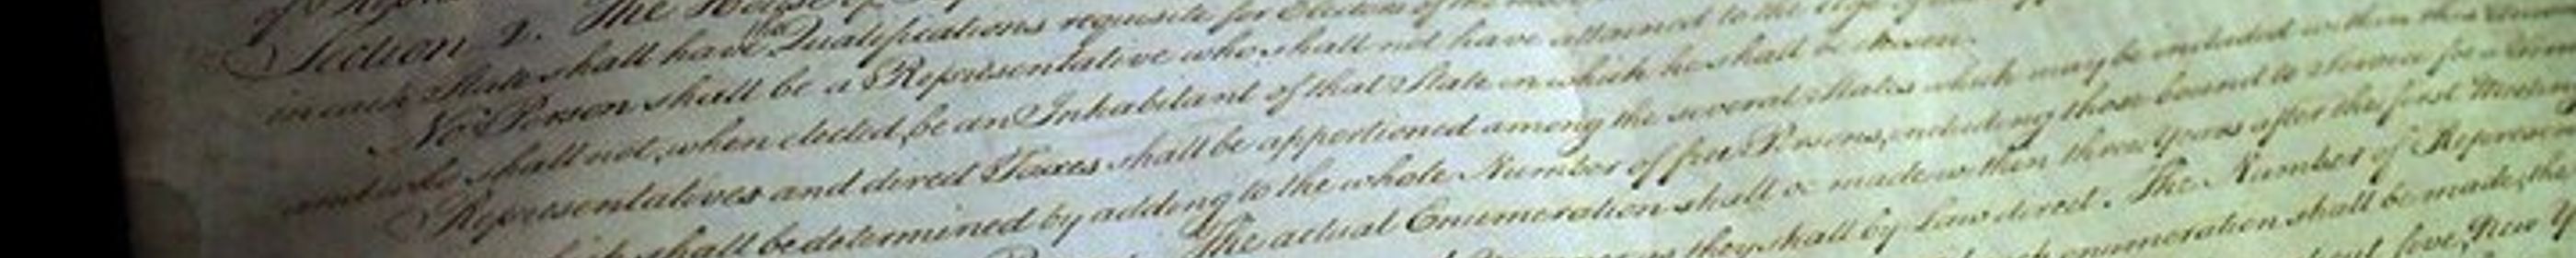 Section 2. The House of
in each State shall have the Qualifications requisite for Electors of the most
No Person shall be a Representative who shall not have attained to the Age of
and who shall not, when elected, be an Inhabitant of that State in which he shall be chosen.
Representatives and direct Taxes shall be apportioned among the several States which may be included within this Union
shall be determined by adding to the whole Number of free Persons, including those bound to Service for a Term
The actual Enumeration shall be made within three Years after the first Meeting
they shall by Law direct. The Number of Represen
enumeration shall be made, the
five, New Y